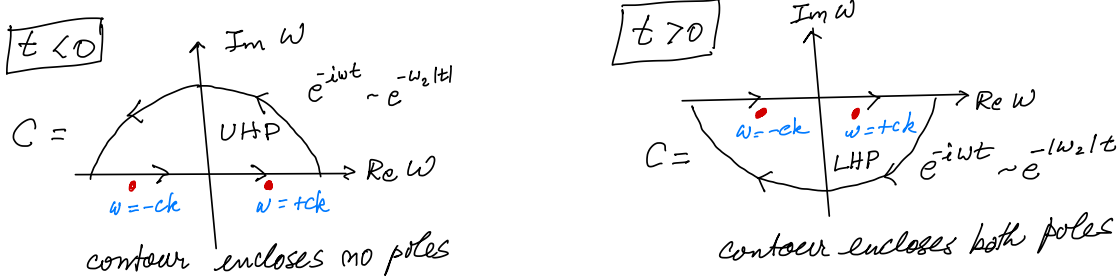 t < 0
Im ω
e^{-iωt} ~ e^{-ω₂|t|}
C =
UHP
Re ω
ω = -ck
ω = +ck
contour encloses no poles
t > 0
Im ω
Re ω
ω = -ck
ω = +ck
C =
LHP
e^{-iωt} ~ e^{-|ω₂|t}
contour encloses both poles